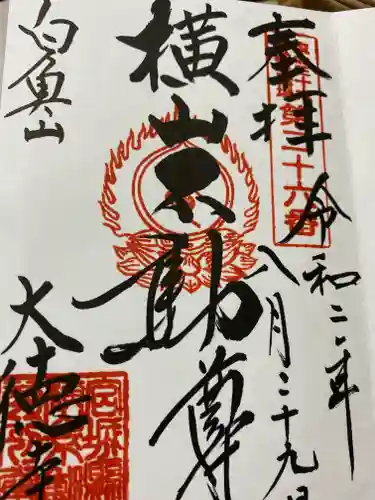 奉拝
第三十六番
令和二年
八月二十九日
横山不動尊
白魚山
大徳寺
宮城縣